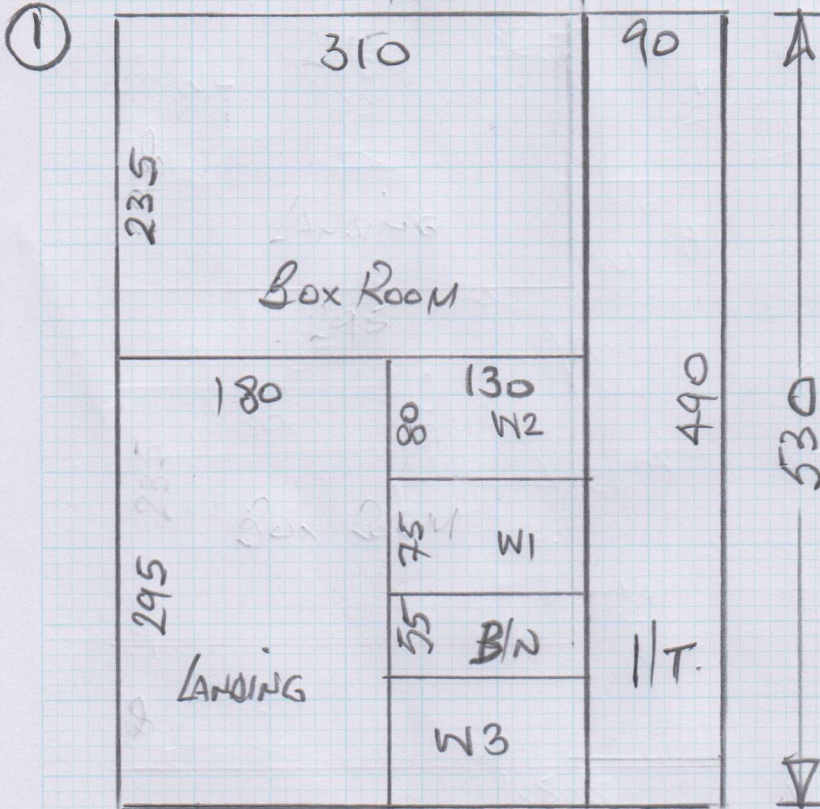 1
310 90
235
Box Room
180 130
80 W2
490
530
75 W1
295
55 B/N
1/T.
LANDING
W3